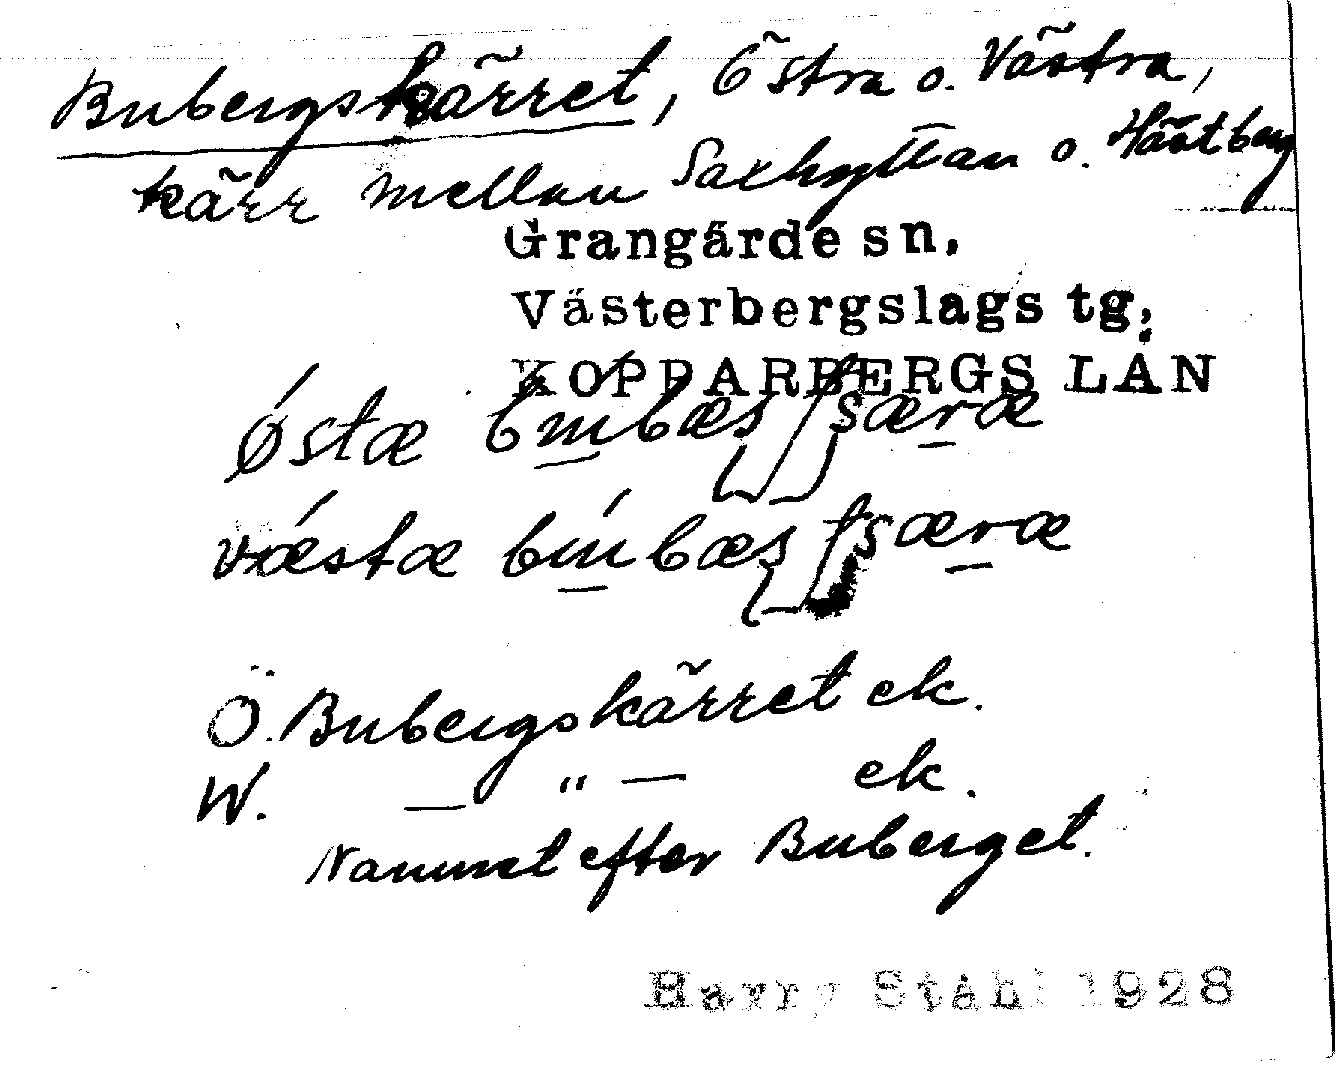 Bubergskärret, Östra o. Västra,
kärr mellan Saxhyttan o. Hästberg
Grangärde sn.
Västerbergslags tg.
KOPPARBERGS LÄN
østæ
væstæ
Ö. Bubergskärret ek.
W. — " — ek.
Namnet efter Buberget.
Harry Ståhl 1928